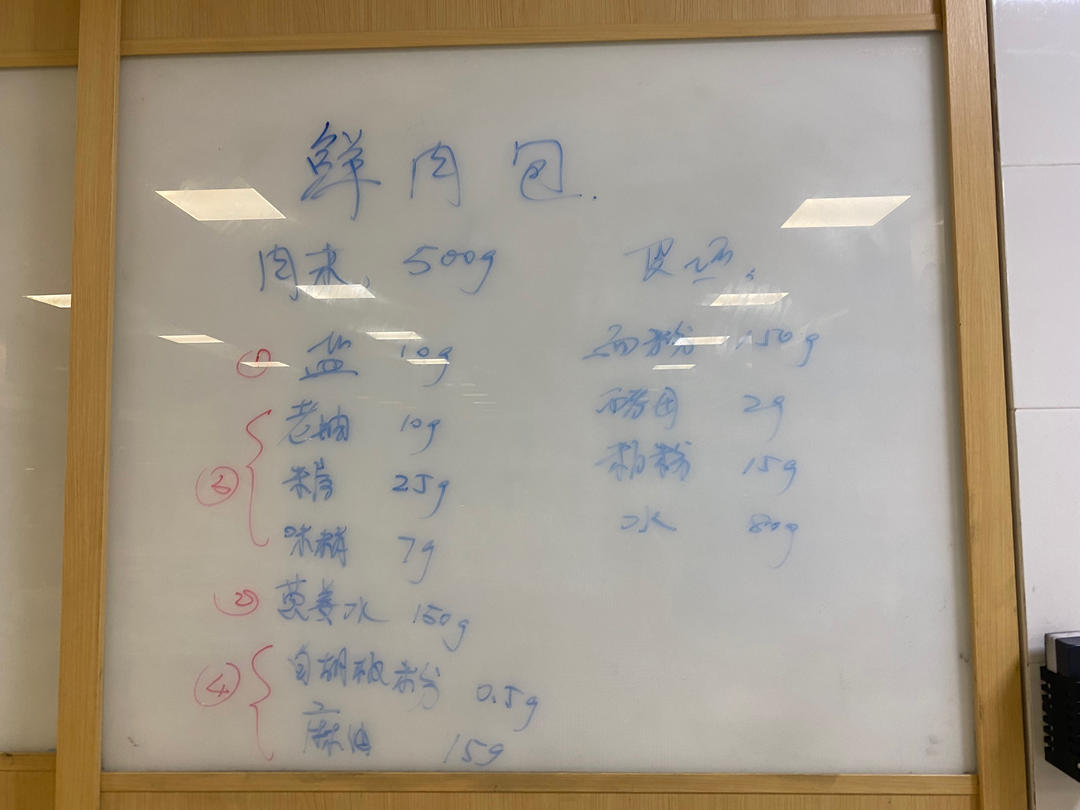 鲜肉包.
肉末, 500g
① 盐 10g
③ 老抽 10g
糖 25g
味精 7g
② 葱姜水 150g
④ 白胡椒粉 0.5g
麻油 15g
皮
面粉 150g
酵母 2g
粉 15g
水 80g